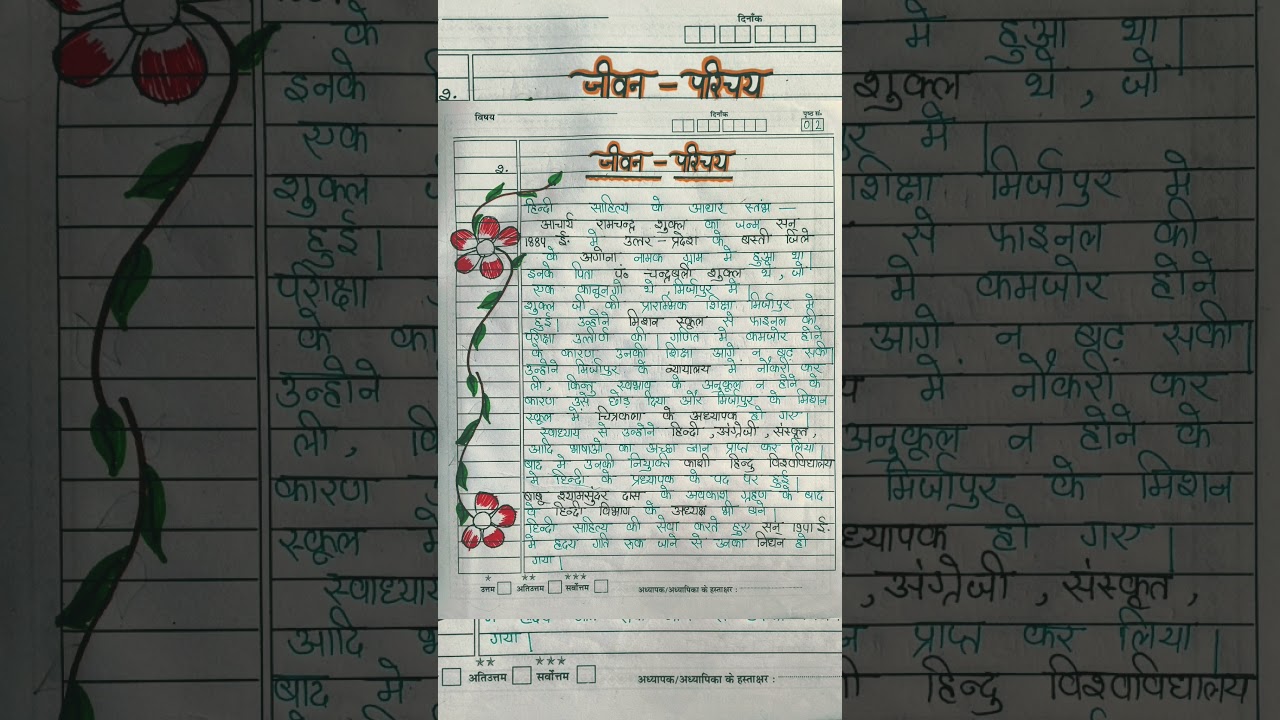 दिनाँक
जीवन - परिचय
२.
विषय
दिनाँक
पृष्ठ सं.
02
जीवन - परिचय
२.
हिन्दी साहित्य के आधार स्तंभ —
आचार्य रामचन्द्र शुक्ल का जन्म सन
1884 ई. में उत्तर - प्रदेश के बस्ती जिले
के अगोना नामक ग्राम में हुआ था।
इनके पिता पं० चन्द्रबली शुक्ल थे, जो
एक कानूनगो थे, मिर्जापुर में।
शुक्ल जी की प्रारम्भिक शिक्षा मिर्जापुर मे
हुई। उन्होने मिशन स्कूल से फाइनल की
परीक्षा उत्तीर्ण की। गणित मे कमजोर होने
के कारण उनकी शिक्षा आगे न बढ सकी।
उन्होने मिर्जापुर के न्यायालय में नौकरी कर
ली, किन्तु स्वभाव के अनुकूल न होने के
कारण उसे छोड दिया और मिर्जापुर के मिशन
स्कूल में चित्रकला के अध्यापक हो गए।
स्वाध्याय से उन्होने हिन्दी, अंग्रेजी, संस्कृत,
आदि भाषाओं का अच्छा ज्ञान प्राप्त कर लिया।
बाद मे उनकी नियुक्ति काशी हिन्दु विश्वविद्यालय
में हिन्दी के प्रध्यापक के पद पर हुई।
बाबू श्यामसुंदर दास के अवकाश ग्रहण के बाद
वे हिन्दी विभाग के अध्यक्ष भी बने।
हिन्दी साहित्य की सेवा करते हुए सन 1941 ई.
में हृदय गति रूक जाने से उनका निधन हो
गया।
उत्तम अतिउत्तम सर्वोत्तम अध्यापक/अध्यापिका के हस्ताक्षर :
गया।
अतिउत्तम सर्वोत्तम अध्यापक/अध्यापिका के हस्ताक्षर :
के
इनके
एक
शुक्ल
हुई।
परीक्षा
के का
उन्होने
ली,
कारण
स्कूल
स्वाध्याय
आदि
बाद मे
मे हुआ था।
शुक्ल थे, जो
में।
शिक्षा मिर्जापुर मे
से फाइनल की
मे कमजोर होने
आगे न बढ सकी।
में नौकरी कर
अनुकूल न होने के
मिर्जापुर के मिशन
ध्यापक हो गए।
, अंग्रेजी, संस्कृत,
प्राप्त कर लिया।
हिन्दु विश्वविद्यालय